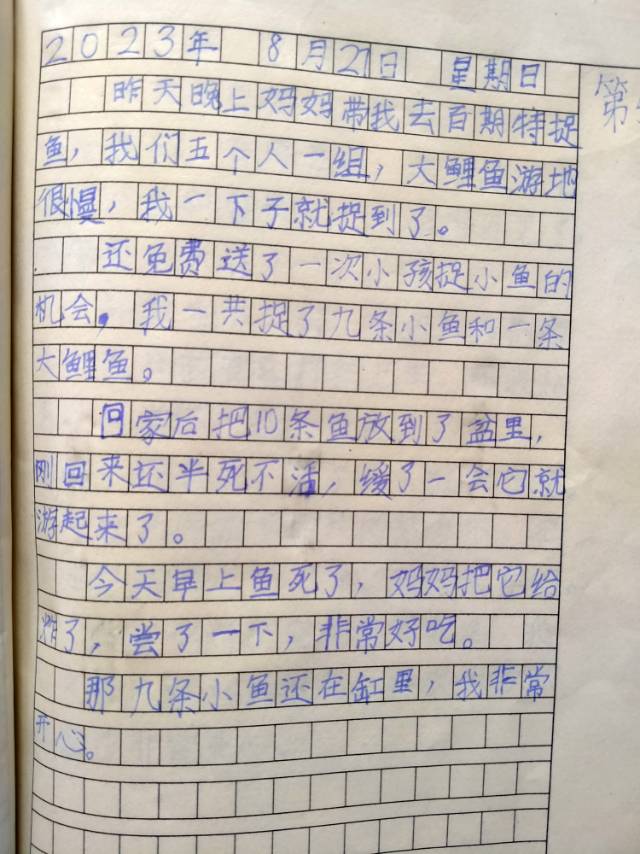 2023年 8月27日 星期日
昨天晚上妈妈带我去百期特捉
鱼，我们五个人一组，大鲤鱼游地
很慢，我一下子就捉到了。
还免费送了一次小孩捉小鱼的
机会，我一共捉了九条小鱼和一条
大鲤鱼。
回家后把10条鱼放到了盆里，
刚回来还半死不活，缓了一会它就
游起来了。
今天早上鱼死了，妈妈把它给
炸了，尝了一下，非常好吃。
那九条小鱼还在缸里，我非常
开心。
第